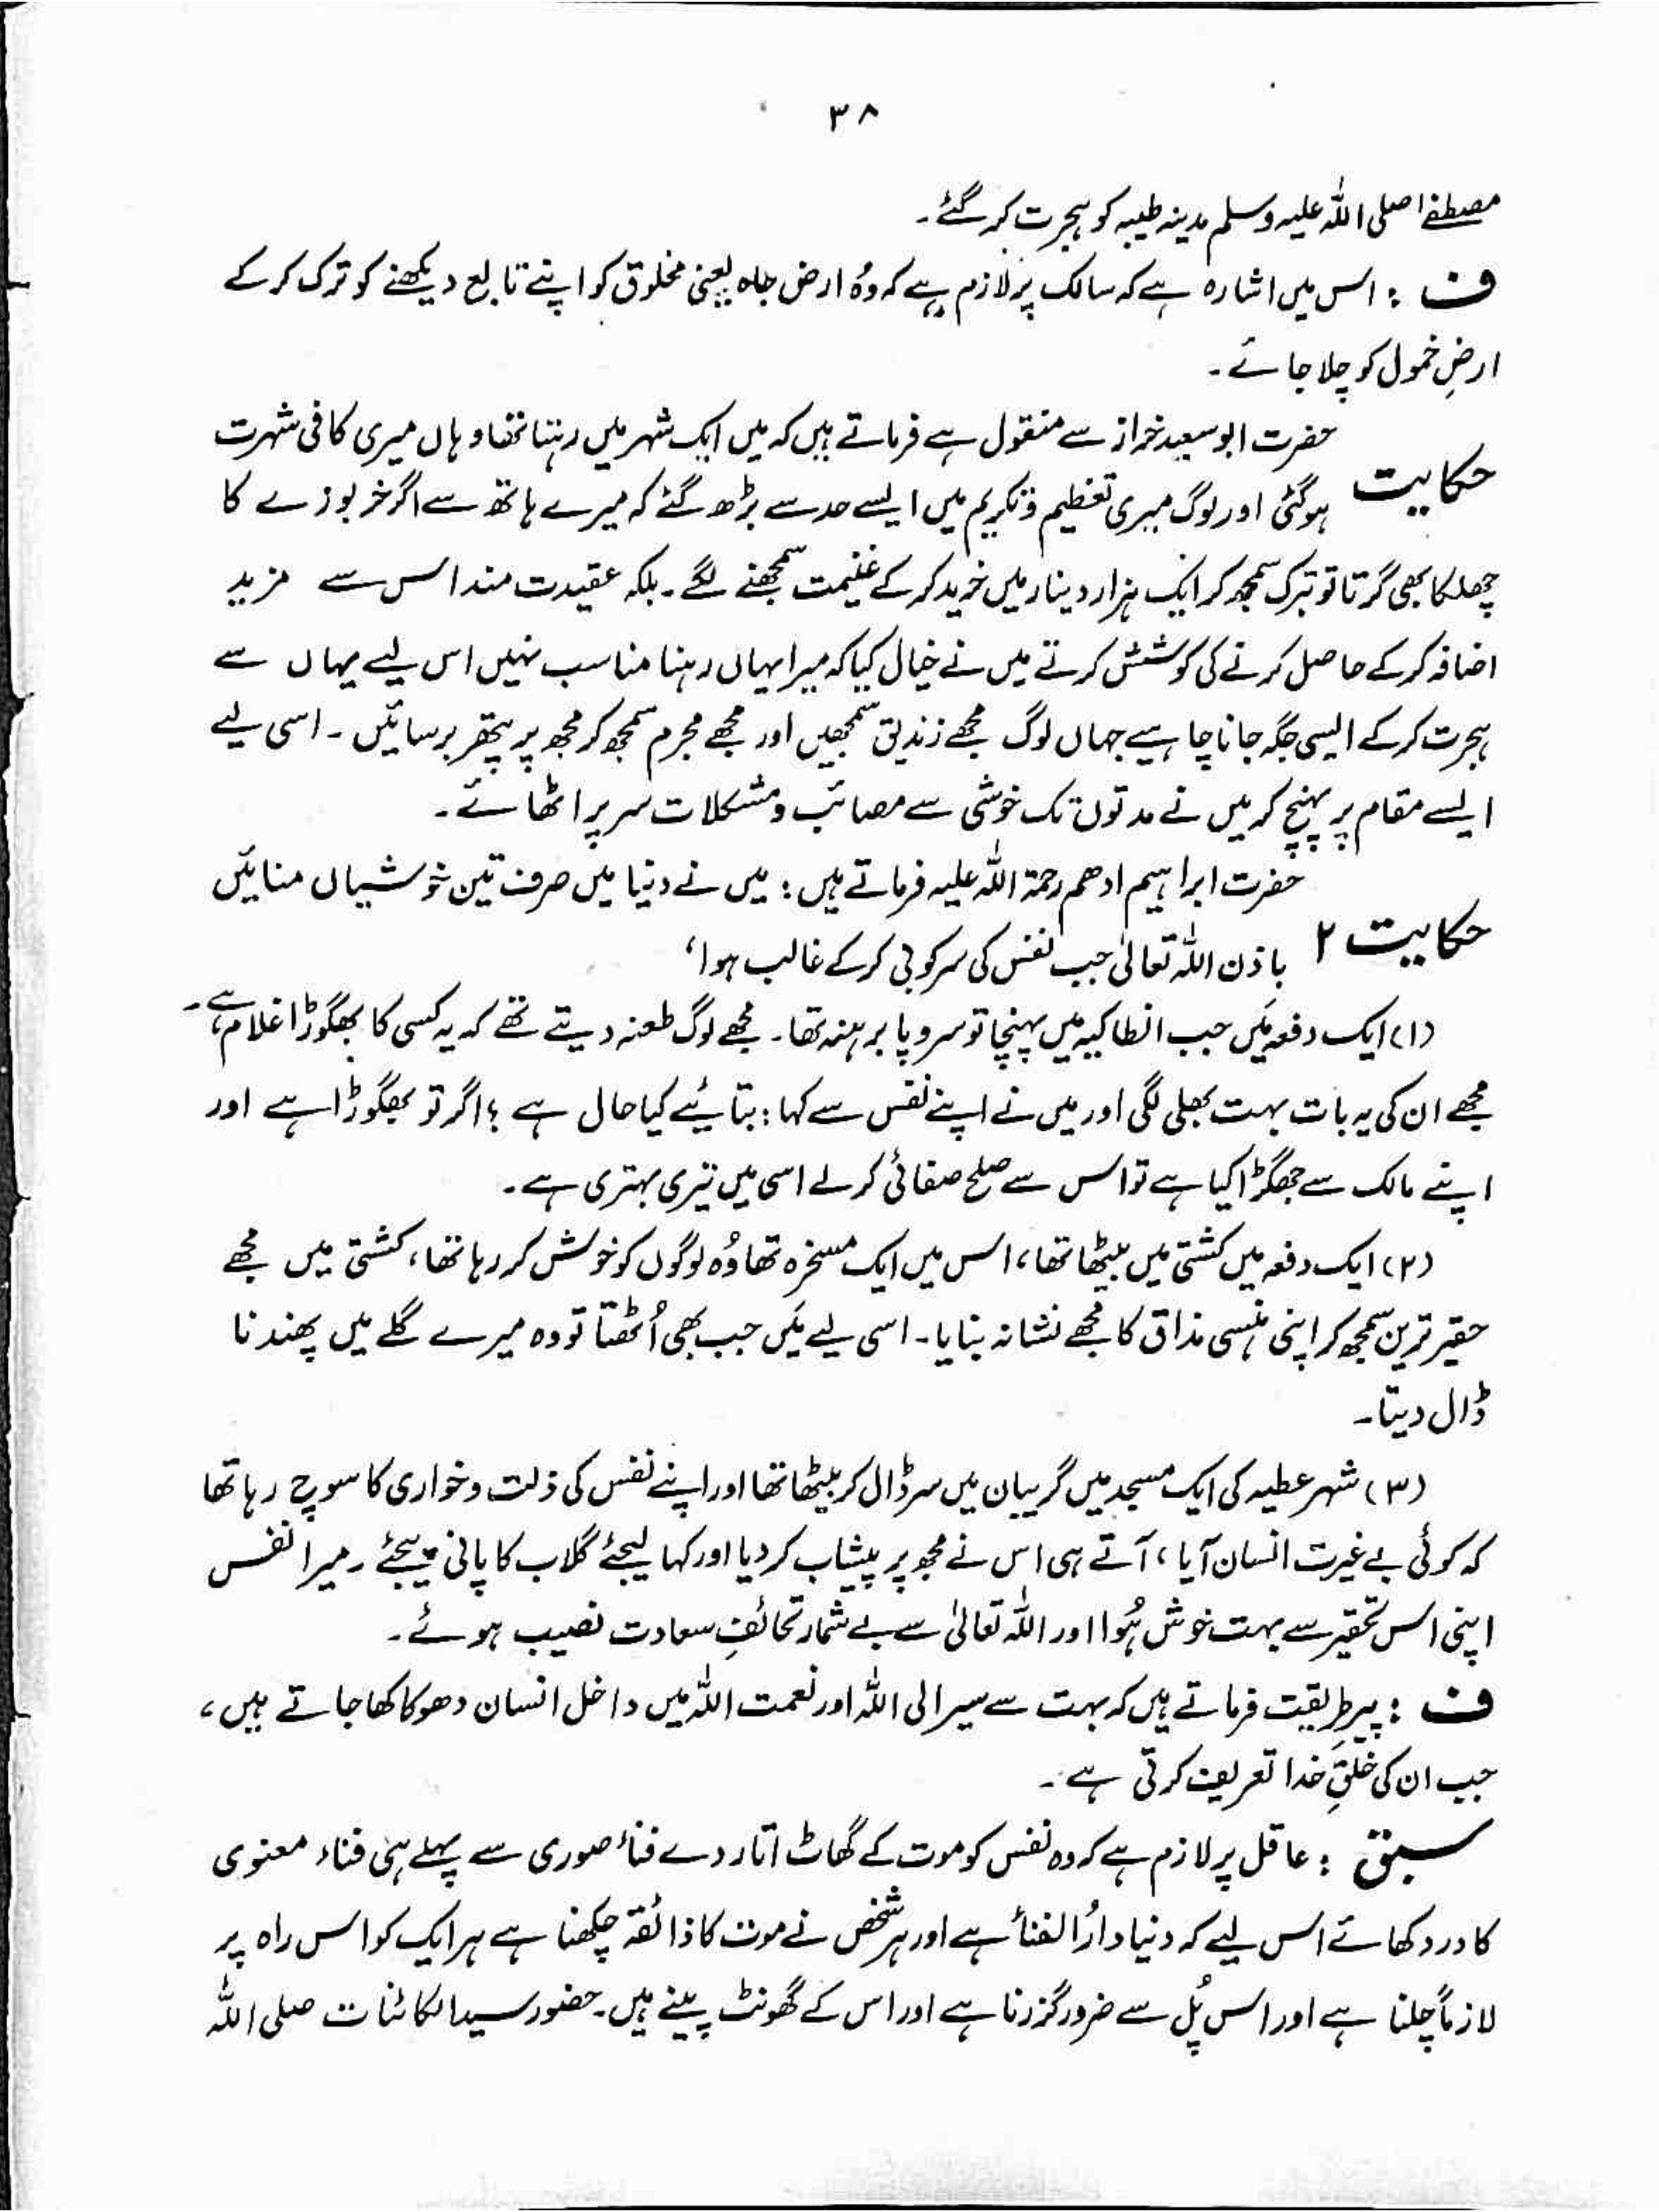 ۳۸
مصطفےا صلی اللہ علیہ وسلم مدینہ طیبہ کو ہجرت کر گئے۔
ف : اس میں اشارہ ہے کہ سالک پر لازم ہے کہ وُہ ارض جاہ یعنی مخلوق کو اپنے تابع دیکھنے کو ترک کر کے
ارضِ خمول کو چلا جائے۔
حضرت ابوسعید خراز سے منقول ہے فرماتے ہیں کہ میں ایک شہر میں رہتا تھا وہاں میری کافی شہرت
حکایت ہوگئی اور لوگ میری تعظیم و تکریم میں ایسے حد سے بڑھ گئے کہ میرے ہاتھ سے اگر خربوزے کا
چھلکا بھی گرتا تو تبرک سمجھ کر ایک ہزار دینار میں خرید کر کے غنیمت سمجھنے لگے۔ بلکہ عقیدت مند اس سے مزید
اضافہ کر کے حاصل کرنے کی کوشش کرتے میں نے خیال کیا کہ میرا یہاں رہنا مناسب نہیں اس لیے یہاں سے
ہجرت کر کے ایسی جگہ جانا چاہیے جہاں لوگ مجھے زندیق سمجھیں اور مجھے مجرم سمجھ کر مجھ پر پتھر برسائیں۔ اسی لیے
ایسے مقام پر پہنچ کر میں نے مدتوں تک خوشی سے مصائب و مشکلات سر پر اٹھائے۔
حضرت ابراہیم ادھم رحمۃ اللہ علیہ فرماتے ہیں : میں نے دنیا میں صرف تین خوشیاں منائیں
حکایت ۲ باذن اللہ تعالیٰ جب نفس کی سرکوبی کر کے غالب ہوا،
(۱) ایک دفعہ مَیں جب انطاکیہ میں پہنچا تو سروپا برہنہ تھا۔ مجھے لوگ طعنہ دیتے تھے کہ یہ کسی کا بھگوڑا غلام ہے۔
مجھے ان کی یہ بات بہت بھلی لگی اور میں نے اپنے نفس سے کہا : بتائیے کیا حال ہے ؛ اگر تو بھگوڑا ہے اور
اپنے مالک سے جھگڑا کیا ہے تو اس سے صلح صفائی کر لے اسی میں تیری بہتری ہے۔
(۲) ایک دفعہ میں کشتی میں بیٹھا تھا، اس میں ایک مسخرہ تھا وُہ لوگوں کو خوش کر رہا تھا، کشتی میں مجھے
حقیر ترین سمجھ کر اپنی ہنسی مذاق کا مجھے نشانہ بنایا۔ اسی لیے مَیں جب بھی اُٹھتا تو وہ میرے گلے میں پھندنا
ڈال دیتا۔
(۳) شہر عطیہ کی ایک مسجد میں گریبان میں سر ڈال کر بیٹھا تھا اور اپنے نفس کی ذلت و خواری کا سوچ رہا تھا
کہ کوئی بے غیرت انسان آیا، آتے ہی اس نے مجھ پر پیشاب کر دیا اور کہا لیجئے گلاب کا پانی پیجئے۔ میرا نفس
اپنی اس تحقیر سے بہت خوش ہُوا اور اللہ تعالیٰ سے بے شمار تحائفِ سعادت نصیب ہوئے۔
ف : پیر طریقت فرماتے ہیں کہ بہت سے سیر الی اللہ اور نعمت اللہ میں داخل انسان دھوکا کھا جاتے ہیں،
جب ان کی خلقِ خدا تعریف کرتی ہے۔
سبق : عاقل پر لازم ہے کہ وہ نفس کو موت کے گھاٹ اتار دے فناءِ صوری سے پہلے ہی فناء معنوی
کا درد کھائے اس لیے کہ دنیا دارُ الفناء ہے اور ہر شخص نے موت کا ذائقہ چکھنا ہے ہر ایک کو اس راہ پر
لازماً چلنا ہے اور اس پُل سے ضرور گزرنا ہے اور اس کے گھونٹ پینے ہیں۔ حضور سید الکائنات صلی اللہ